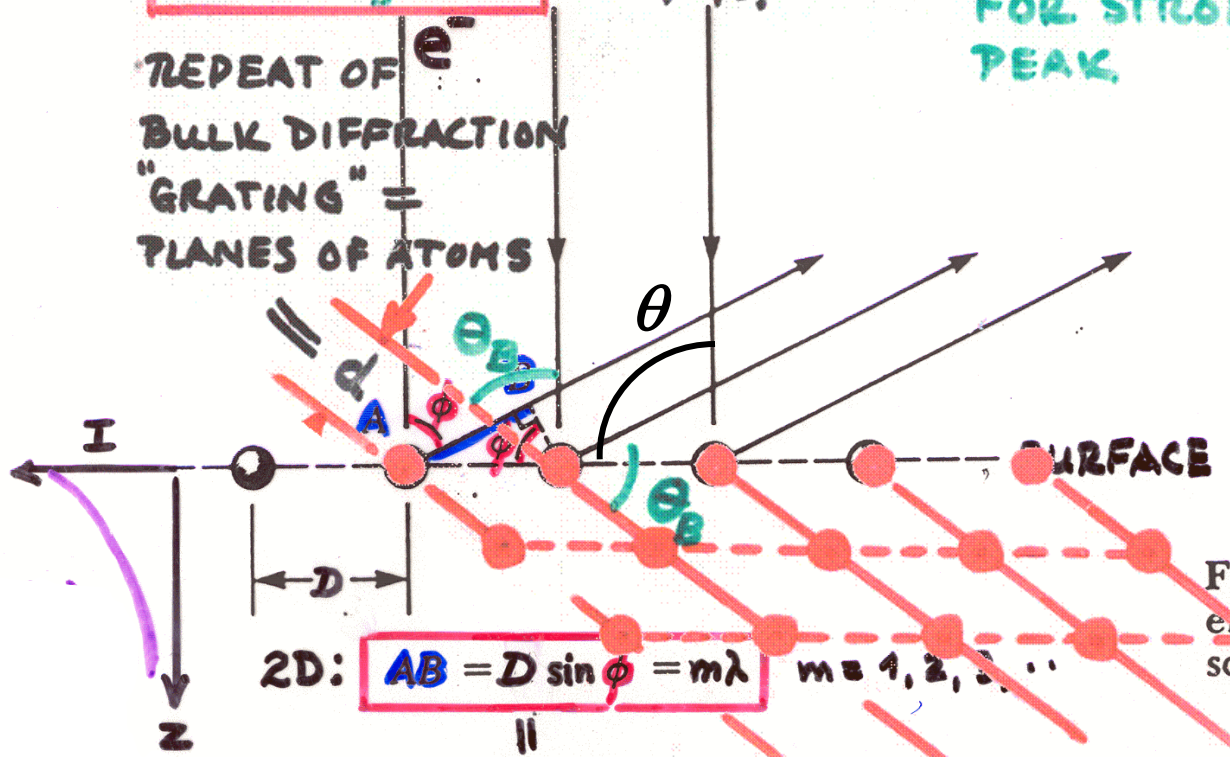 FOR STRO
PEAK
e⁻
REPEAT OF
BULK DIFFRACTION
"GRATING" =
PLANES OF ATOMS
θ
θB
d
B
A
φ
φ
I
SURFACE
θB
D
F
e
sc
2D: AB = D sin φ = mλ m = 1, 2, 3, ..
||
Z